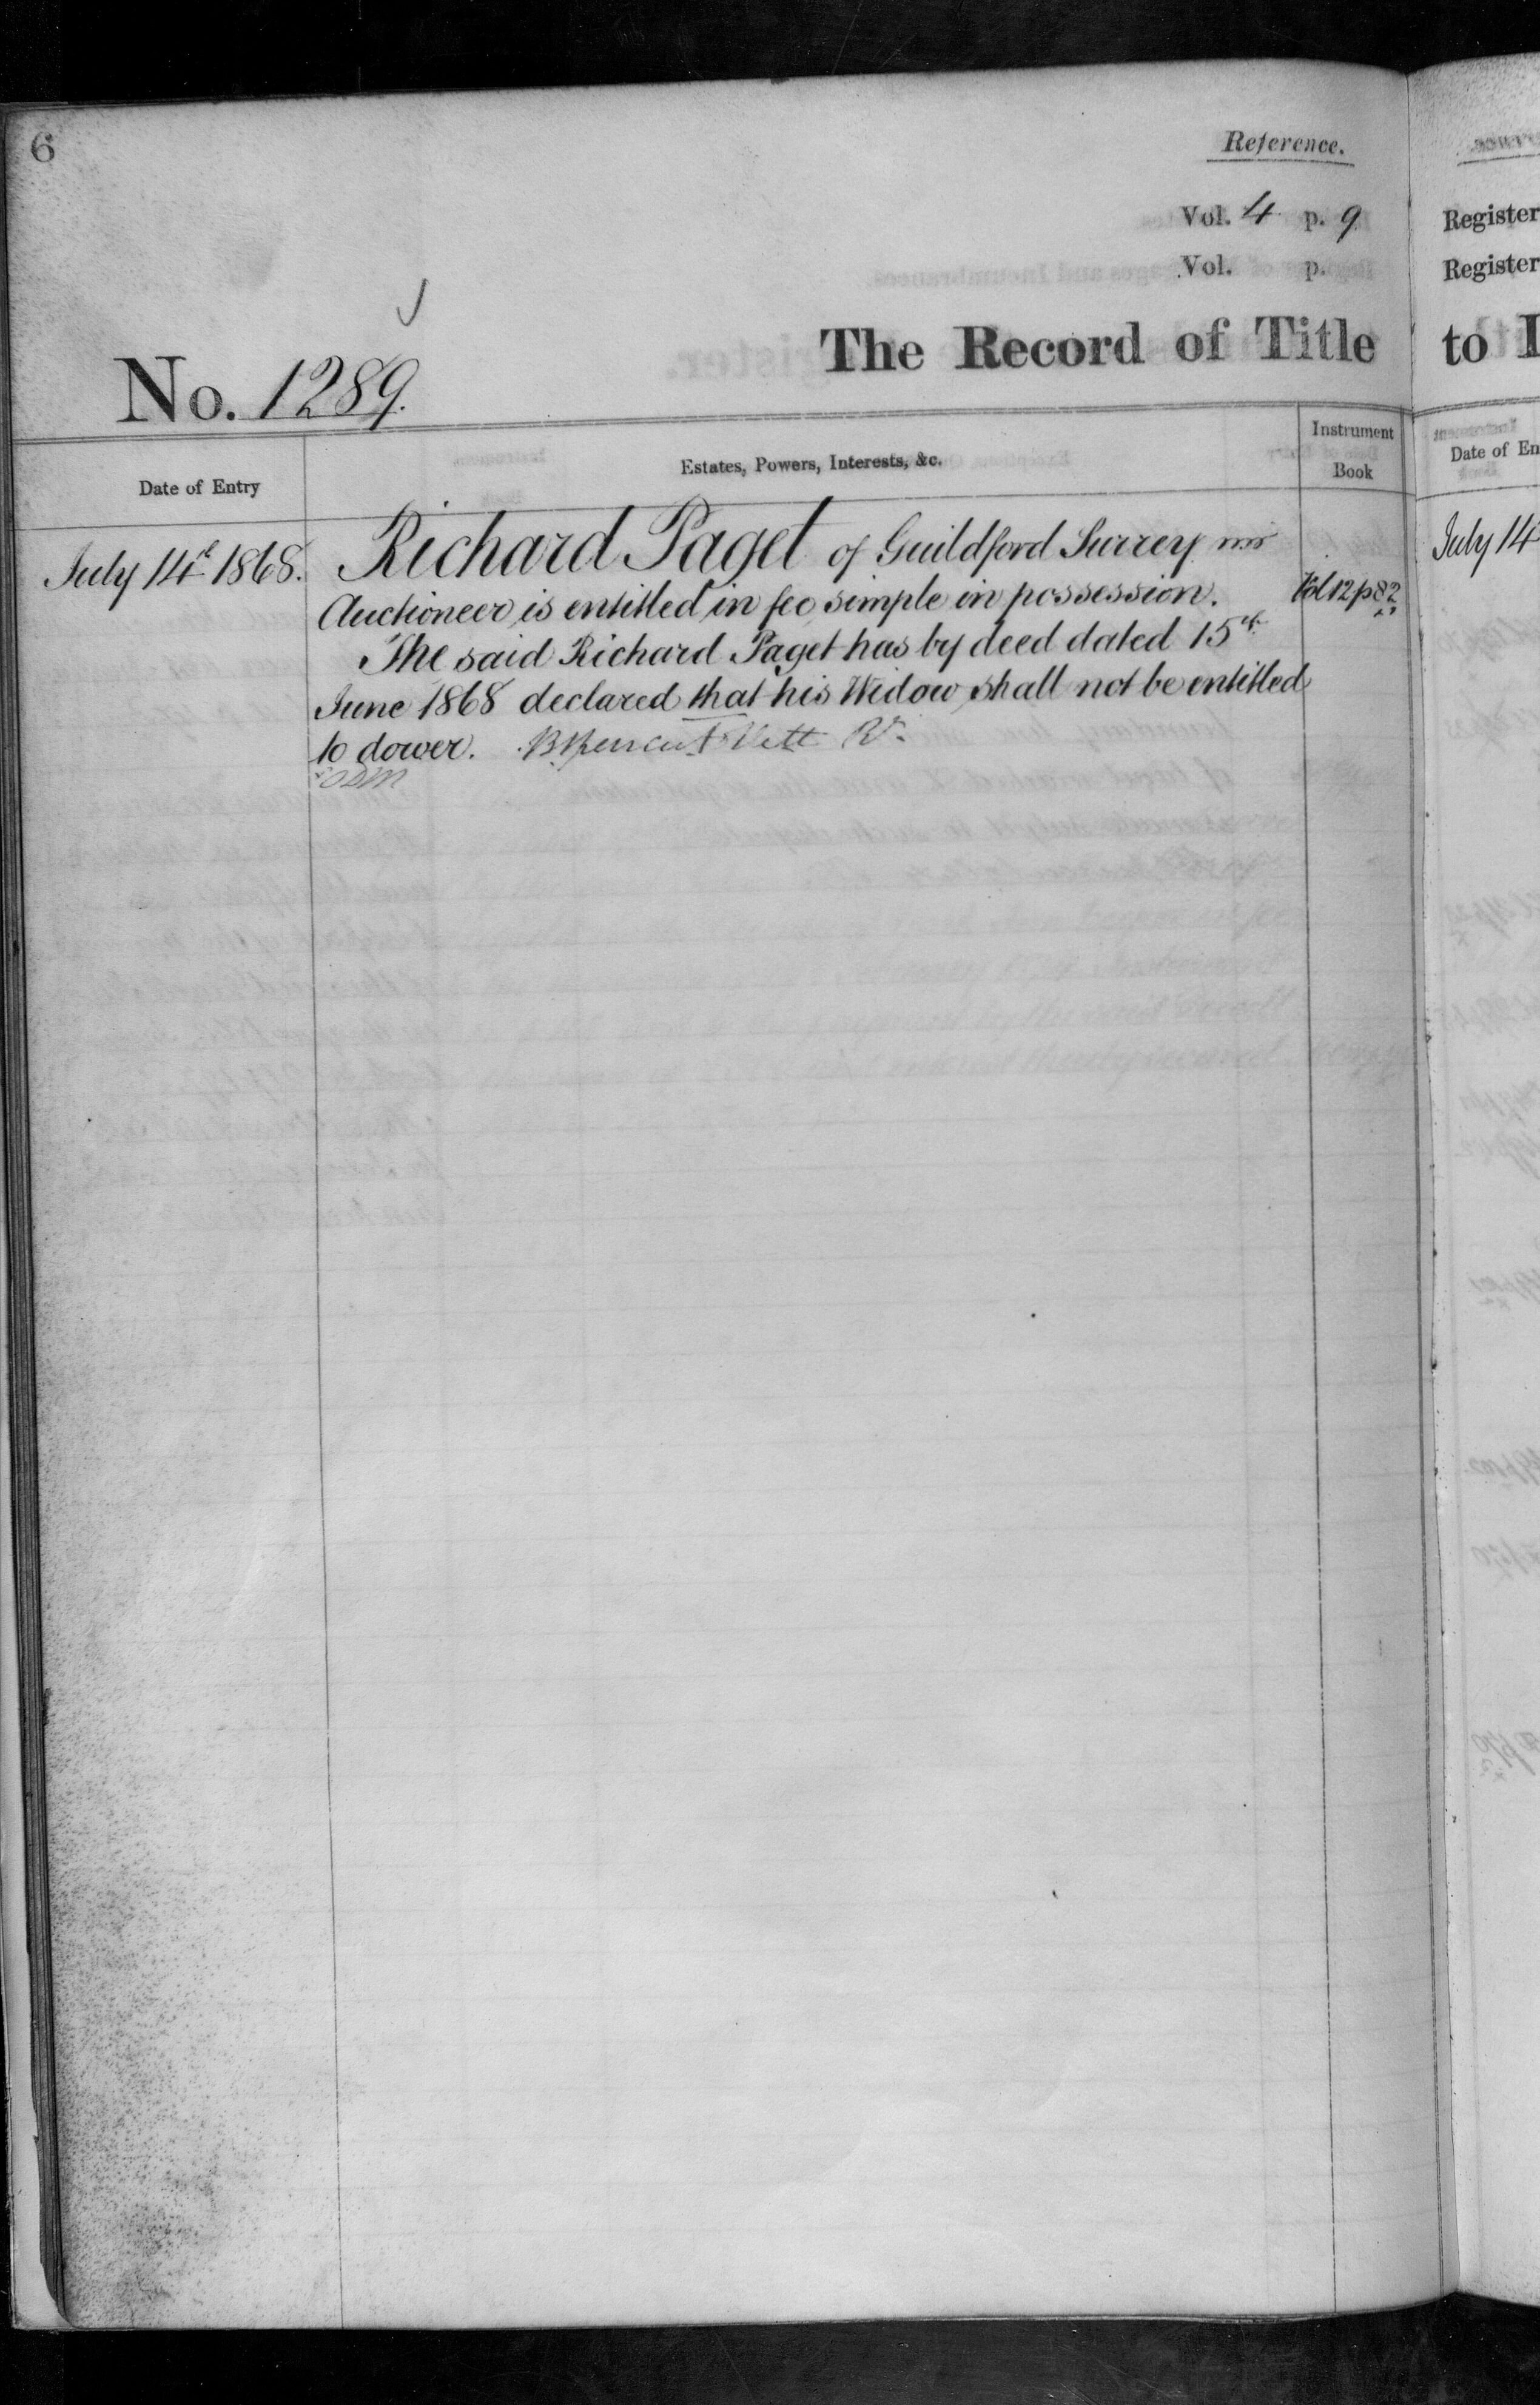 6
Reference.
Vol. 4 p. 9
Vol. p.
No. 1289.
The Record of Title
Date of Entry
Estates, Powers, Interests, &c.
Instrument
Book
July 14th 1868.
Richard Paget of Guildford Surrey
Auctioneer is entitled in fee simple in possession.
Vol 12 p 82
The said Richard Paget has by deed dated 15th
June 1868 declared that his Widow shall not be entitled
to dower.
Register
Register
to
Date of En
July 14